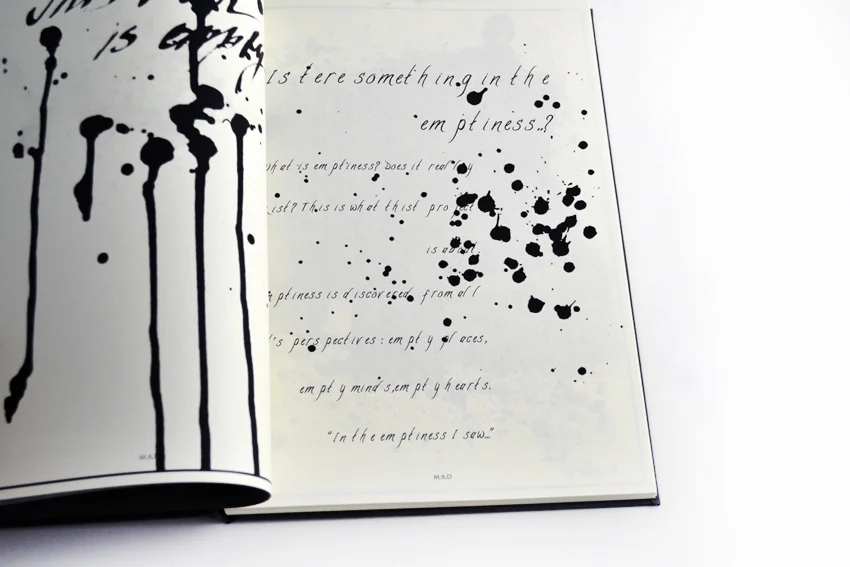 is empty
MAD
Is tere something in the
emptiness..?
what is emptiness? Does it really
exist? This is what thist project
is about.
emptiness is discovered from all
it's perspectives: empty places,
empty minds, empty hearts.
"In the emptiness I saw..."
MAD